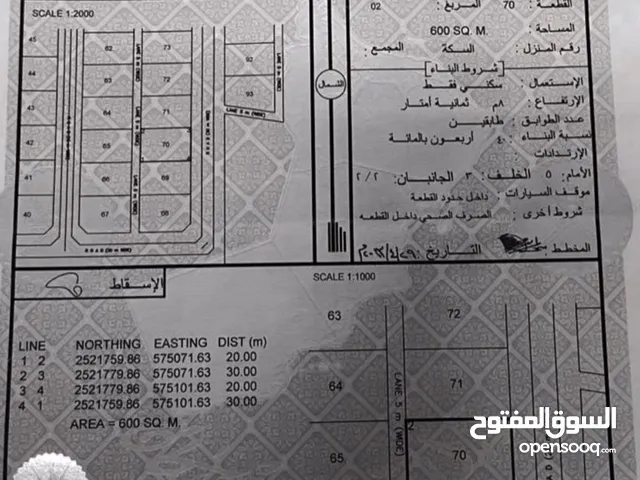 SCALE 1:2000
45
44
43
42
41
40
62
63
64
65
66
67
73
72
71
70
69
68
92
93
LANE 5 m (WIDE)
LANE 5 m (WIDE)
ROAD (20 m WIDE)
الشمال
القطعة : 70 المربع : 02
المساحة : 600 SQ. M.
رقم المنزل : السكة المجمع :
[شروط البناء]
الإستعمال : سكني فقط
الإرتفاع : ٨م ثمانية أمتار
عدد الطوابق : طابقين
نسبة البناء : ٤٠ أربعون بالمائة
الإرتدادات :
الأمام: ٥ الخلف: ٣ الجانبان: ٢/٢
موقف السيارات : داخل حدود القطعة
شروط أخرى : الصرف الصحي داخل القطعة
المخطط : التاريخ :
الإسقاط
SCALE 1:1000
LINE NORTHING EASTING DIST (m)
1 2 2521759.86 575071.63 20.00
2 3 2521779.86 575071.63 30.00
3 4 2521779.86 575101.63 20.00
4 1 2521759.86 575101.63 30.00
AREA = 600 SQ. M.
63
64
65
72
71
70
2
LANE 5 m (WIDE)
السوق المفتوح
opensooq.com